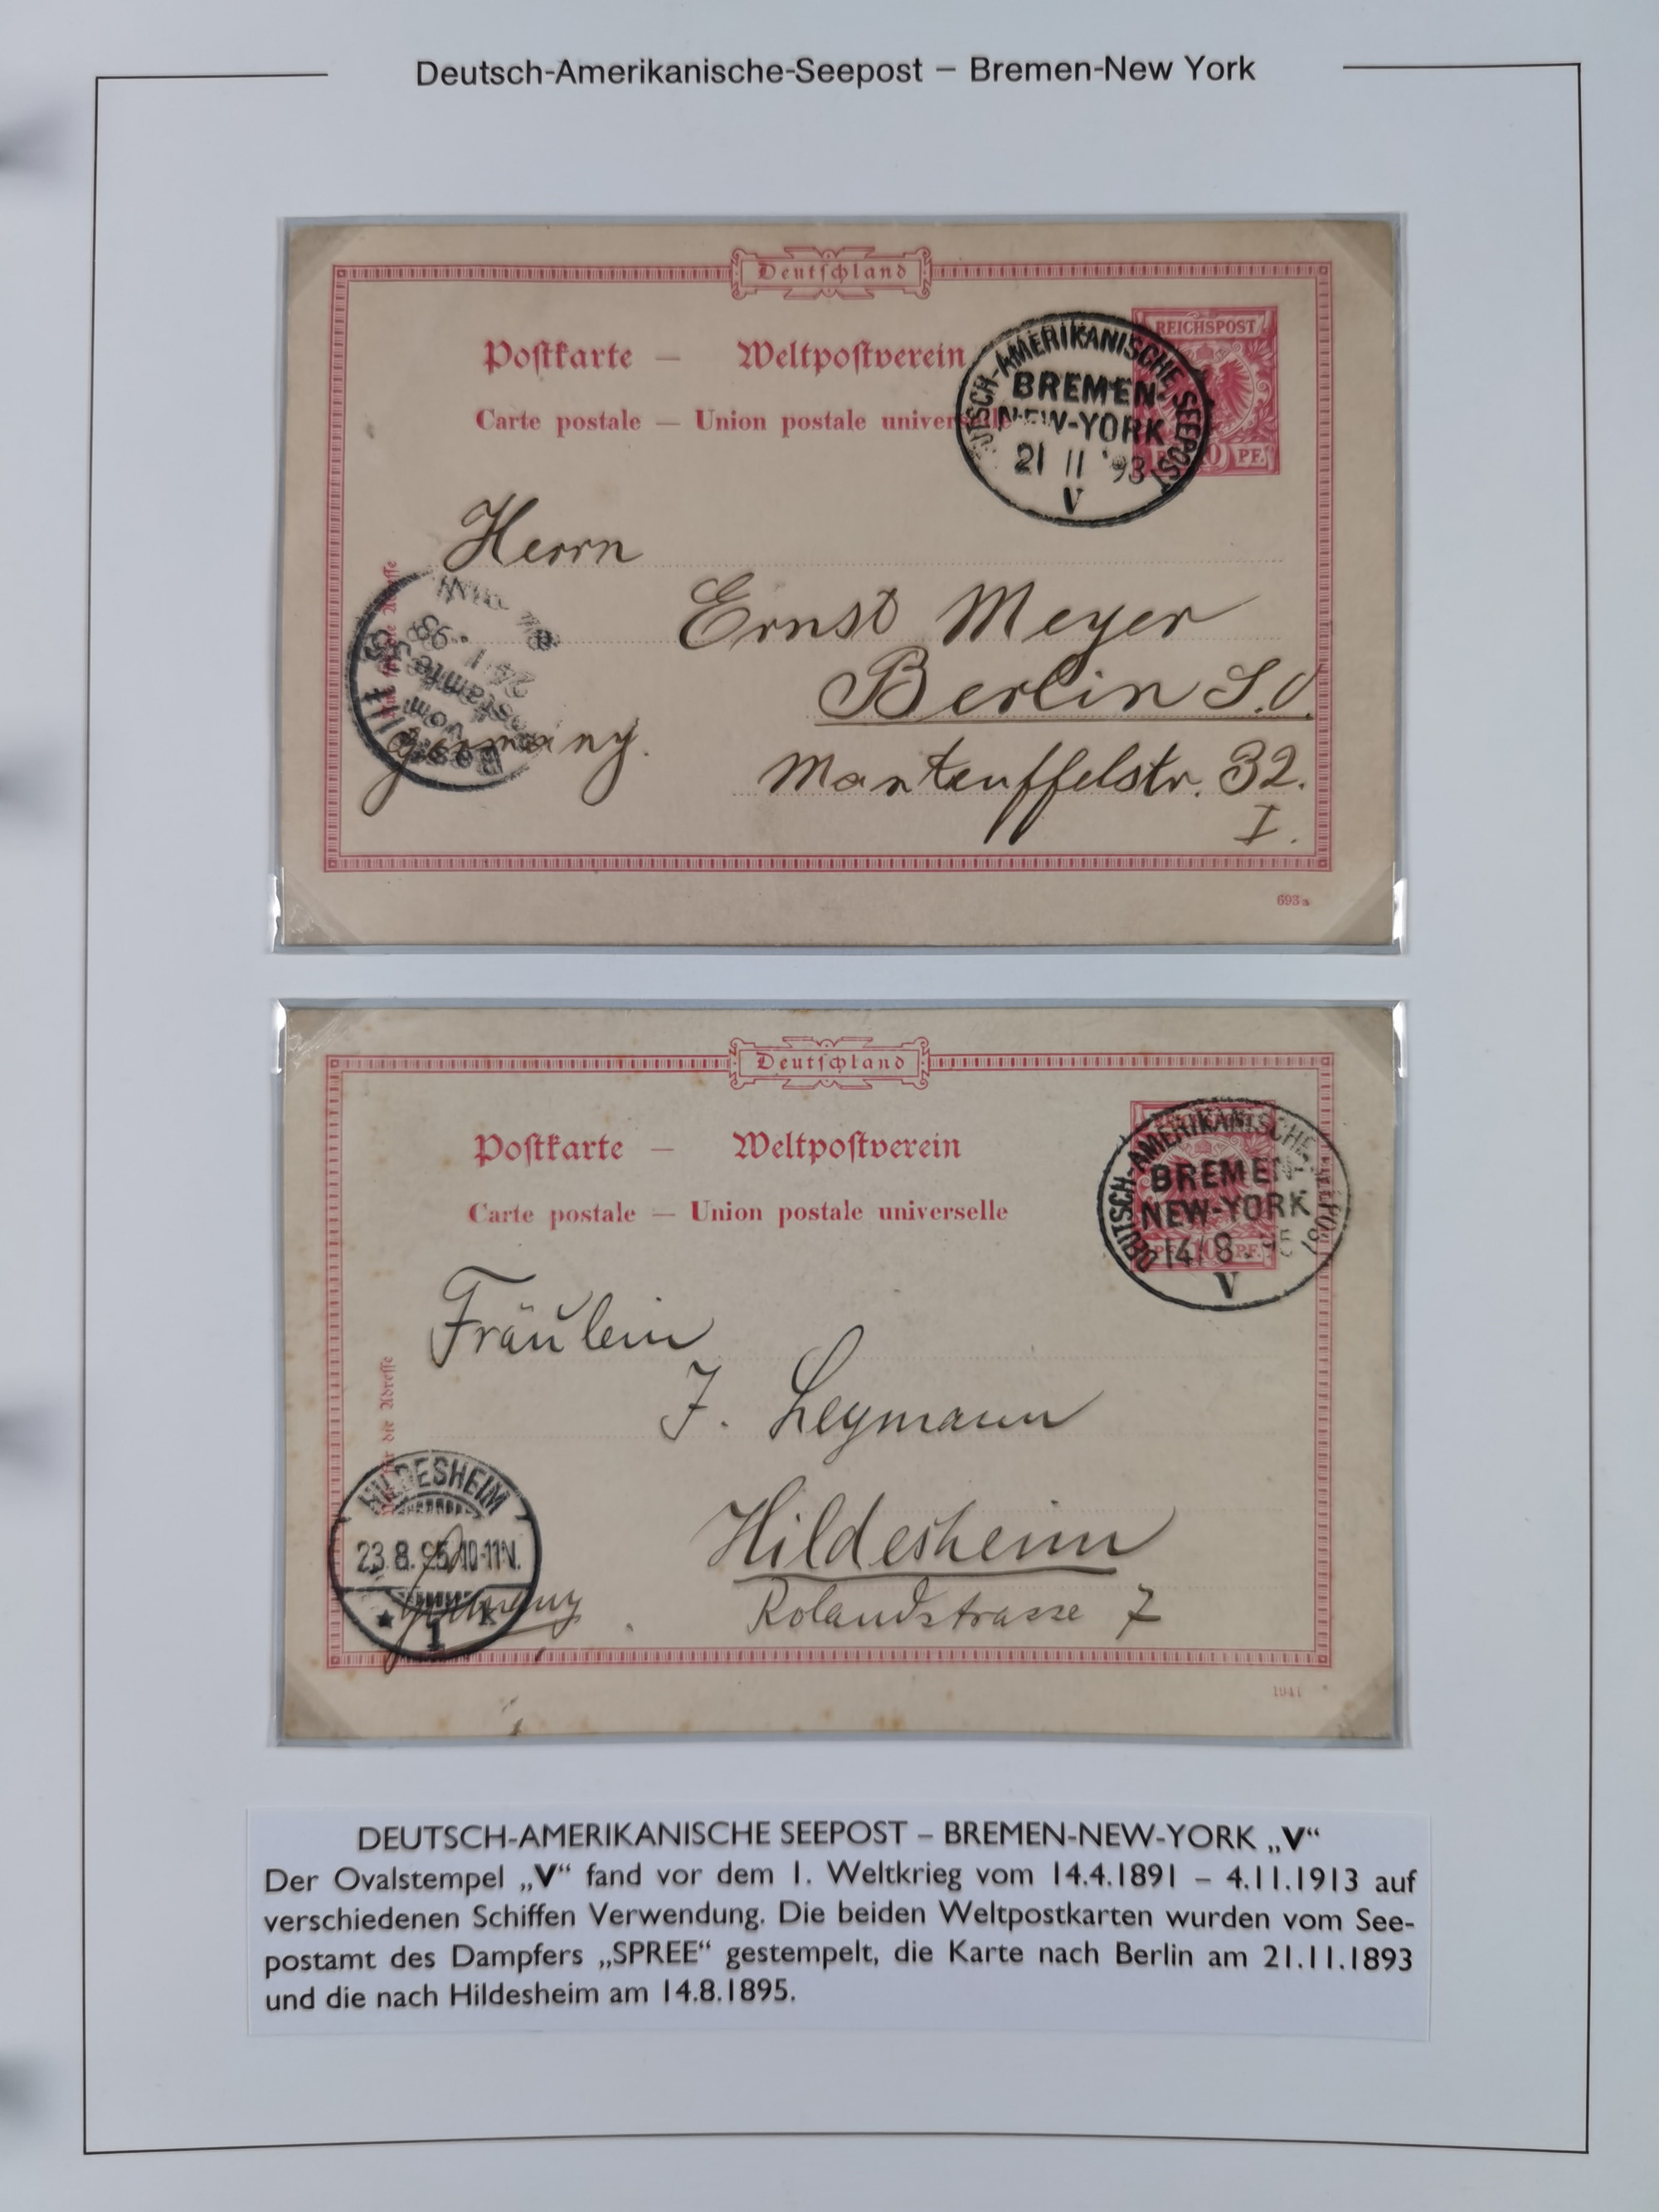 Deutsch-Amerikanische-Seepost – Bremen-New York
Deutschland
Postkarte — Weltpostverein
Carte postale — Union postale universelle
REICHSPOST
10 PF.
UTSCH-AMERIKANISCHE SEEPOST
BREMEN-
NEW-YORK
21 11 '93
V
Herrn
Ernst Meyer
Berlin S.O.
Germany.
Manteuffelstr. 32.
I.
Bestellt
vom
Postamte
693a
Deutschland
Postkarte — Weltpostverein
Carte postale — Union postale universelle
DEUTSCH-AMERIKANISCHE-SEEPOST
BREMEN
NEW-YORK
14/8 95
V
PF. 10 PF.
Fräulein
J. Leymann
Hildesheim
Rolandstrasse 7
Germany
für die Adresse
HILDESHEIM
23.8.95.10-11N.
* 1 k
DEUTSCH-AMERIKANISCHE SEEPOST – BREMEN-NEW-YORK „V“
Der Ovalstempel „V“ fand vor dem 1. Weltkrieg vom 14.4.1891 – 4.11.1913 auf
verschiedenen Schiffen Verwendung. Die beiden Weltpostkarten wurden vom See-
postamt des Dampfers „SPREE“ gestempelt, die Karte nach Berlin am 21.11.1893
und die nach Hildesheim am 14.8.1895.